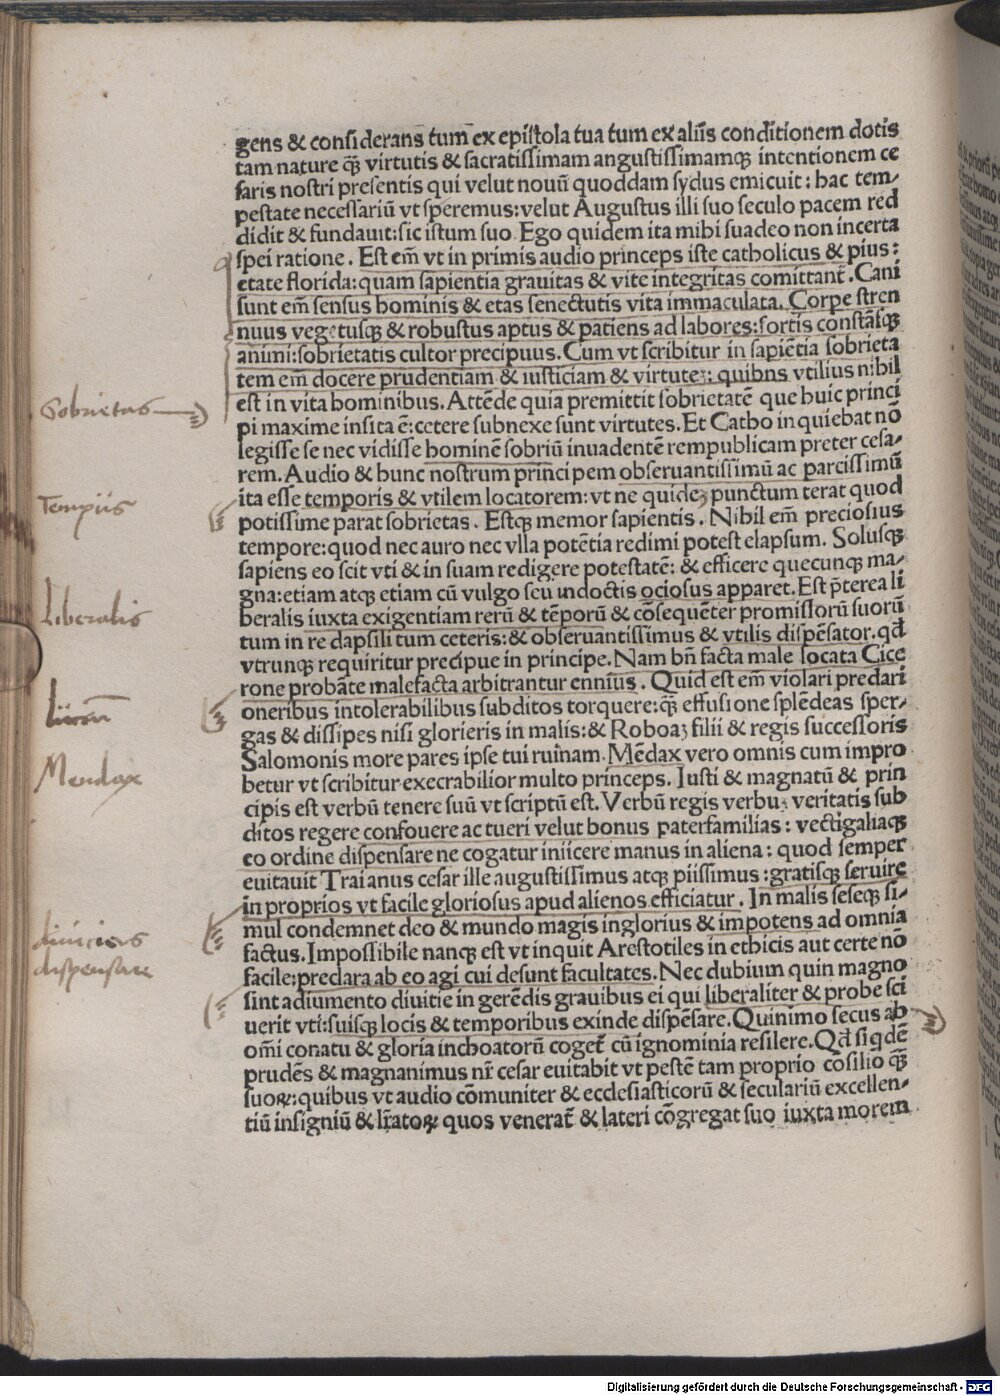 gens & considerans tum ex epistola tua tum ex aliis conditionem dotis
tam nature q̄ȝ virtutis & sacratissimam angustissimamqȝ intentionem ce
saris nostri presentis qui velut nouū quoddam sydus emicuit: hac tem-
pestate necessariū vt speremus: velut Augustus illi suo seculo pacem red
didit & fundauit: sic istum suo. Ego quidem ita mihi suadeo non incerta
spei ratione. Est em̄ vt in primis audio princeps iste catholicus & pius:
etate florida: quam sapientia grauitas & vite integritas comittant̄. Cani
sunt em̄ sensus hominis & etas senectutis vita immaculata. Corpe stren
nuus vegetusqȝ & robustus aptus & patiens ad labores: fortis constāsqȝ
animi: sobrietatis cultor precipuus. Cum vt scribitur in sapiētia sobrieta
tem em̄ docere prudentiam & iusticiam & virtuteȝ: quibns vtilius nihil
est in vita hominibus. Attēde quia premittit sobrietatē que huic princi
pi maxime insita ē: cetere subnexe sunt virtutes. Et Catho inquiebat nō
legisse se nec vidisse hominē sobriū inuadentē rempublicam preter cesa-
rem. Audio & hunc nostrum principem obseruantissimū ac parcissimū
ita esse temporis & vtilem locatorem: vt ne quideȝ punctum terat quod
potissime parat sobrietas. Estqȝ memor sapientis. Nihil em̄ preciosius
tempore: quod nec auro nec vlla potētia redimi potest elapsum. Solusqȝ
sapiens eo scit vti & in suam redigere potestatē: & efficere quecunqȝ ma-
gna: etiam atqȝ etiam cū vulgo seu indoctis ociosus apparet. Est p̄terea li
beralis iuxta exigentiam rerū & tēporū & cōsequēter promissorū suorū
tum in re dapsili tum ceteris: & obseruantissimus & vtilis dispēsator. qd̄
vtrunqȝ requiritur precipue in principe. Nam bn̄ facta male locata Cice
rone probāte malefacta arbitrantur ennius. Quid est em̄ violari predari
oneribus intolerabilibus subditos torquere: q̄ȝ effusione splēdeas sper-
gas & dissipes nisi glorieris in malis: & Roboaȝ filii & regis successoris
Salomonis more pares ipse tui ruinam. Mēdax vero omnis cum impro
betur vt scribitur execrabilior multo princeps. Iusti & magnatū & prin
cipis est verbū tenere suū vt scriptū est. Verbū regis verbuȝ veritatis sub
ditos regere confouere ac tueri velut bonus paterfamilias: vectigaliaqȝ
eo ordine dispensare ne cogatur iniicere manus in aliena: quod semper
euitauit Traianus cesar ille augustissimus atqȝ piissimus: gratisqȝ seruire
in proprios vt facile gloriosus apud alienos efficiatur. In malis seseqȝ si-
mul condemnet deo & mundo magis inglorius & impotens ad omnia
factus. Impossibile nanqȝ est vt inquit Arestotiles in ethicis aut certe nō
facile: preclara ab eo agi cui desunt facultates. Nec dubium quin magno
sint adiumento diuitie in gerēdis grauibus ei qui liberaliter & probe sci
uerit vti: suisqȝ locis & temporibus exinde dispēsare. Quinimo secus ab
om̄i conatu & gloria inchoatorū coget̄ cū ignominia resilere. Qd̄ siqdē
prudēs & magnanimus nr̄ cesar euitabit vt pestē tam proprio cōsilio q̄ȝ
suoꝝ: quibus vt audio cōmuniter & ecclesiasticorū & seculariū excellen-
tiū insigniū & lr̄atoꝝ quos venerat̄ & lateri cōgregat suo iuxta morem
Sobrietas
Liberalis
Mendax
dispensare
Digitalisierung gefördert durch die Deutsche Forschungsgemeinschaft - DFG